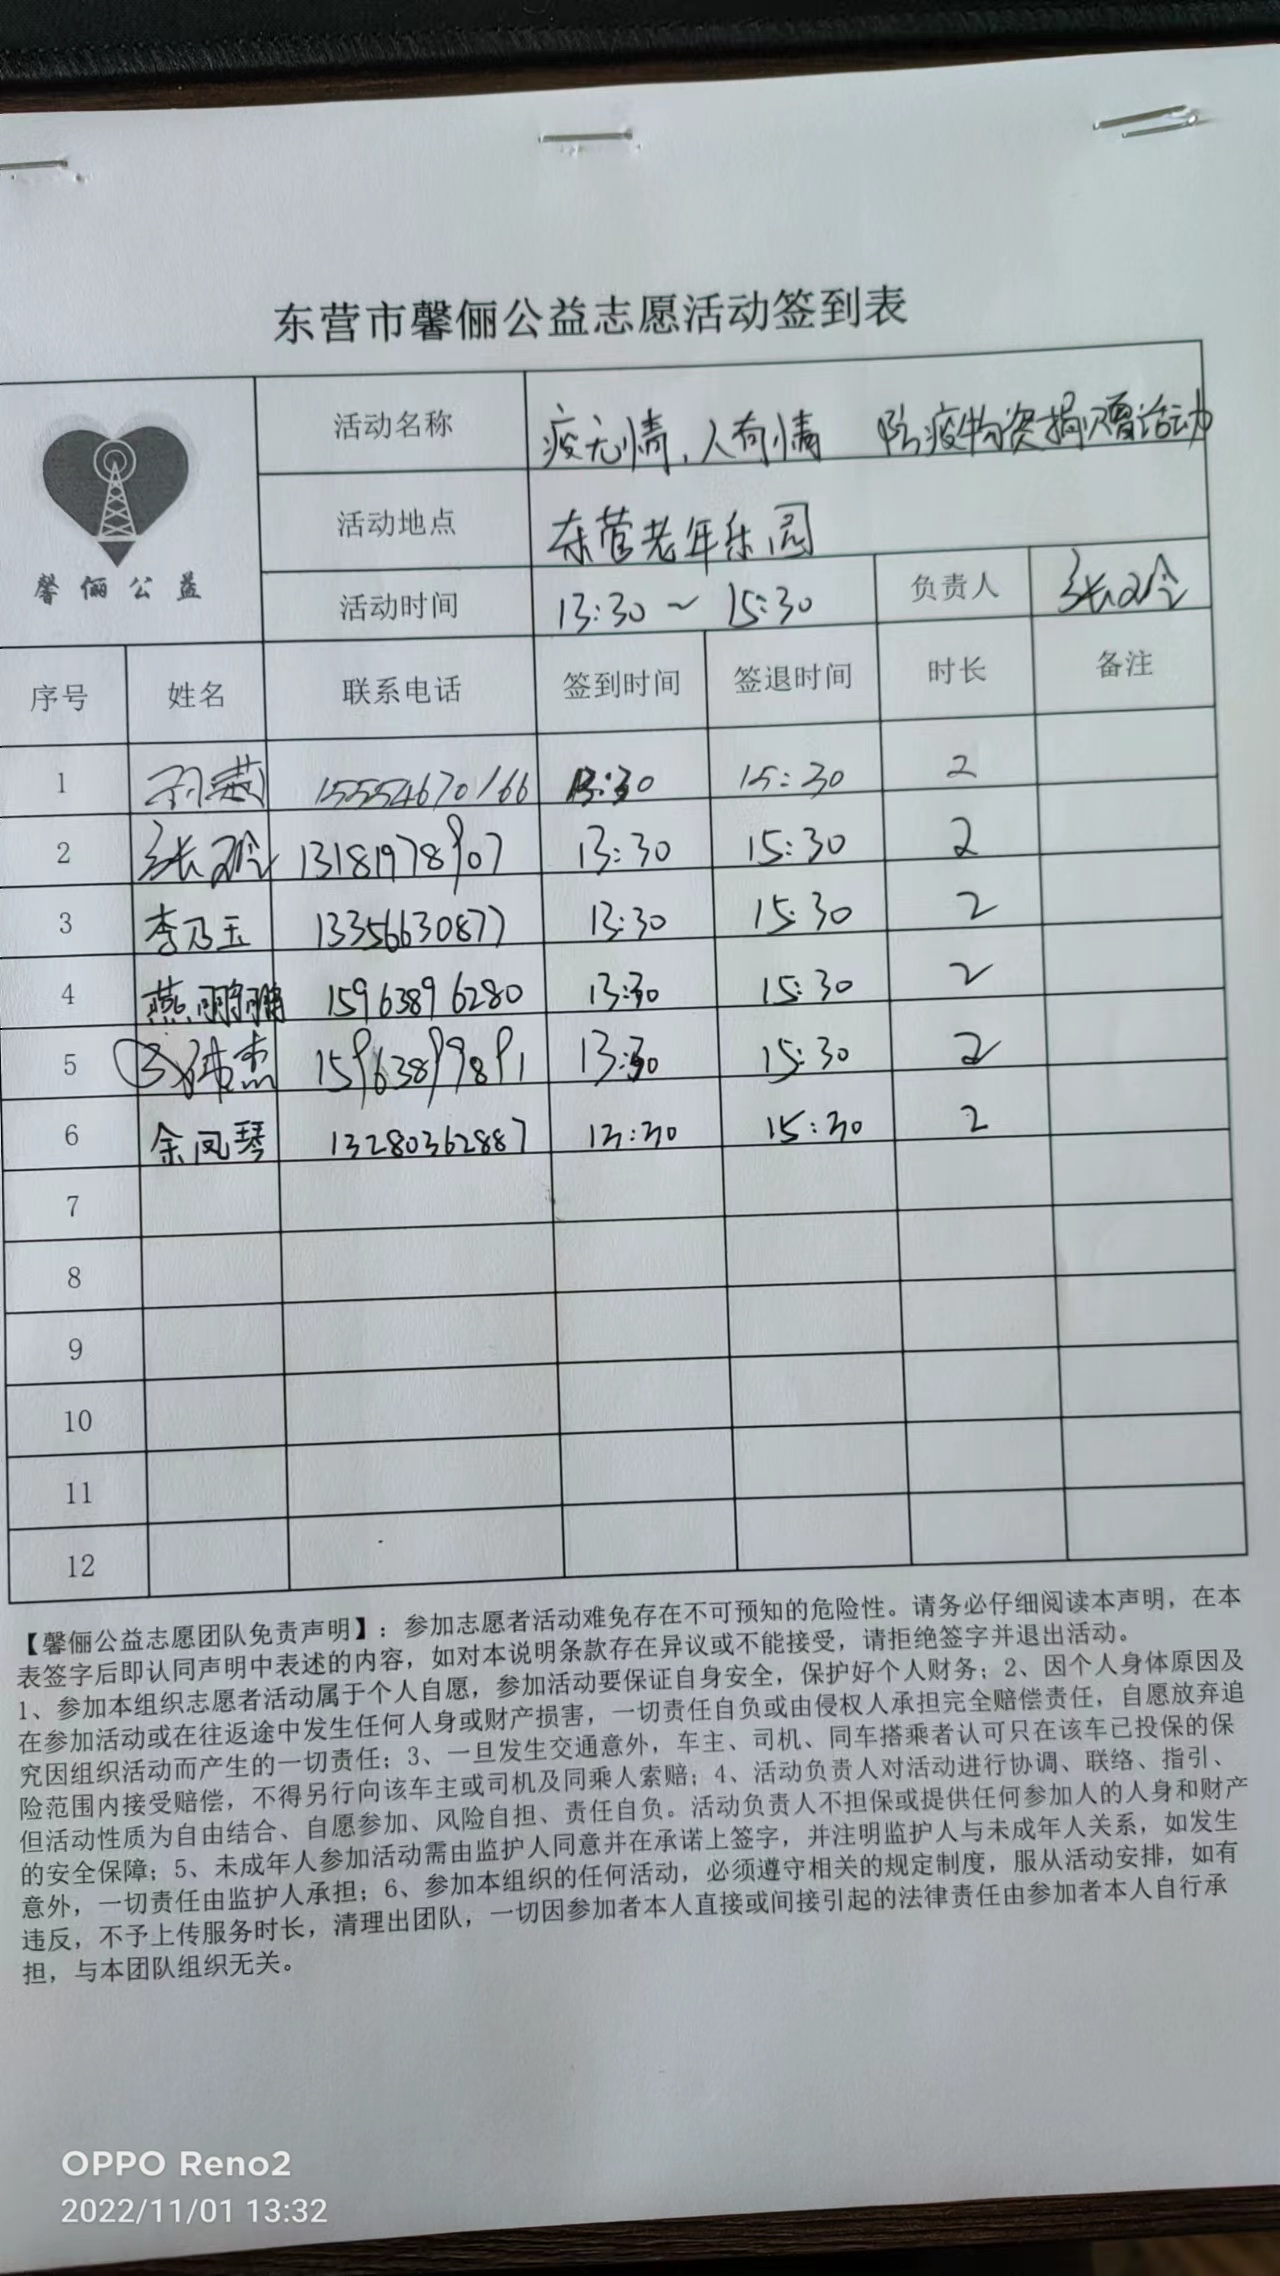 东营市馨俪公益志愿活动签到表
馨俪公益
活动名称 疫无情，人有情 防疫物资捐赠活动
活动地点 东营老年乐园
活动时间 13:30～15:30 负责人 张玲
序号 姓名 联系电话 签到时间 签退时间 时长 备注
1 15554670166 13:30 15:30 2
2 张玲 13181978907 13:30 15:30 2
3 李乃玉 13356630877 13:30 15:30 2
4 燕鹏鹏 15963896280 13:30 15:30 2
5 15963899891 13:30 15:30 2
6 余凤琴 13280362887 13:30 15:30 2
7
8
9
10
11
12
【馨俪公益志愿团队免责声明】：参加志愿者活动难免存在不可预知的危险性。请务必仔细阅读本声明，在本
表签字后即认同声明中表述的内容，如对本说明条款存在异议或不能接受，请拒绝签字并退出活动。
1、参加本组织志愿者活动属于个人自愿，参加活动要保证自身安全，保护好个人财务；2、因个人身体原因及
在参加活动或在往返途中发生任何人身或财产损害，一切责任自负或由侵权人承担完全赔偿责任，自愿放弃追
究因组织活动而产生的一切责任；3、一旦发生交通意外，车主、司机、同车搭乘者认可只在该车已投保的保
险范围内接受赔偿，不得另行向该车主或司机及同乘人索赔；4、活动负责人对活动进行协调、联络、指引、
但活动性质为自由结合、自愿参加、风险自担、责任自负。活动负责人不担保或提供任何参加人的人身和财产
的安全保障；5、未成年人参加活动需由监护人同意并在承诺上签字，并注明监护人与未成年人关系，如发生
意外，一切责任由监护人承担；6、参加本组织的任何活动，必须遵守相关的规定制度，服从活动安排，如有
违反，不予上传服务时长，清理出团队，一切因参加者本人直接或间接引起的法律责任由参加者本人自行承
担，与本团队组织无关。
OPPO Reno2
2022/11/01 13:32